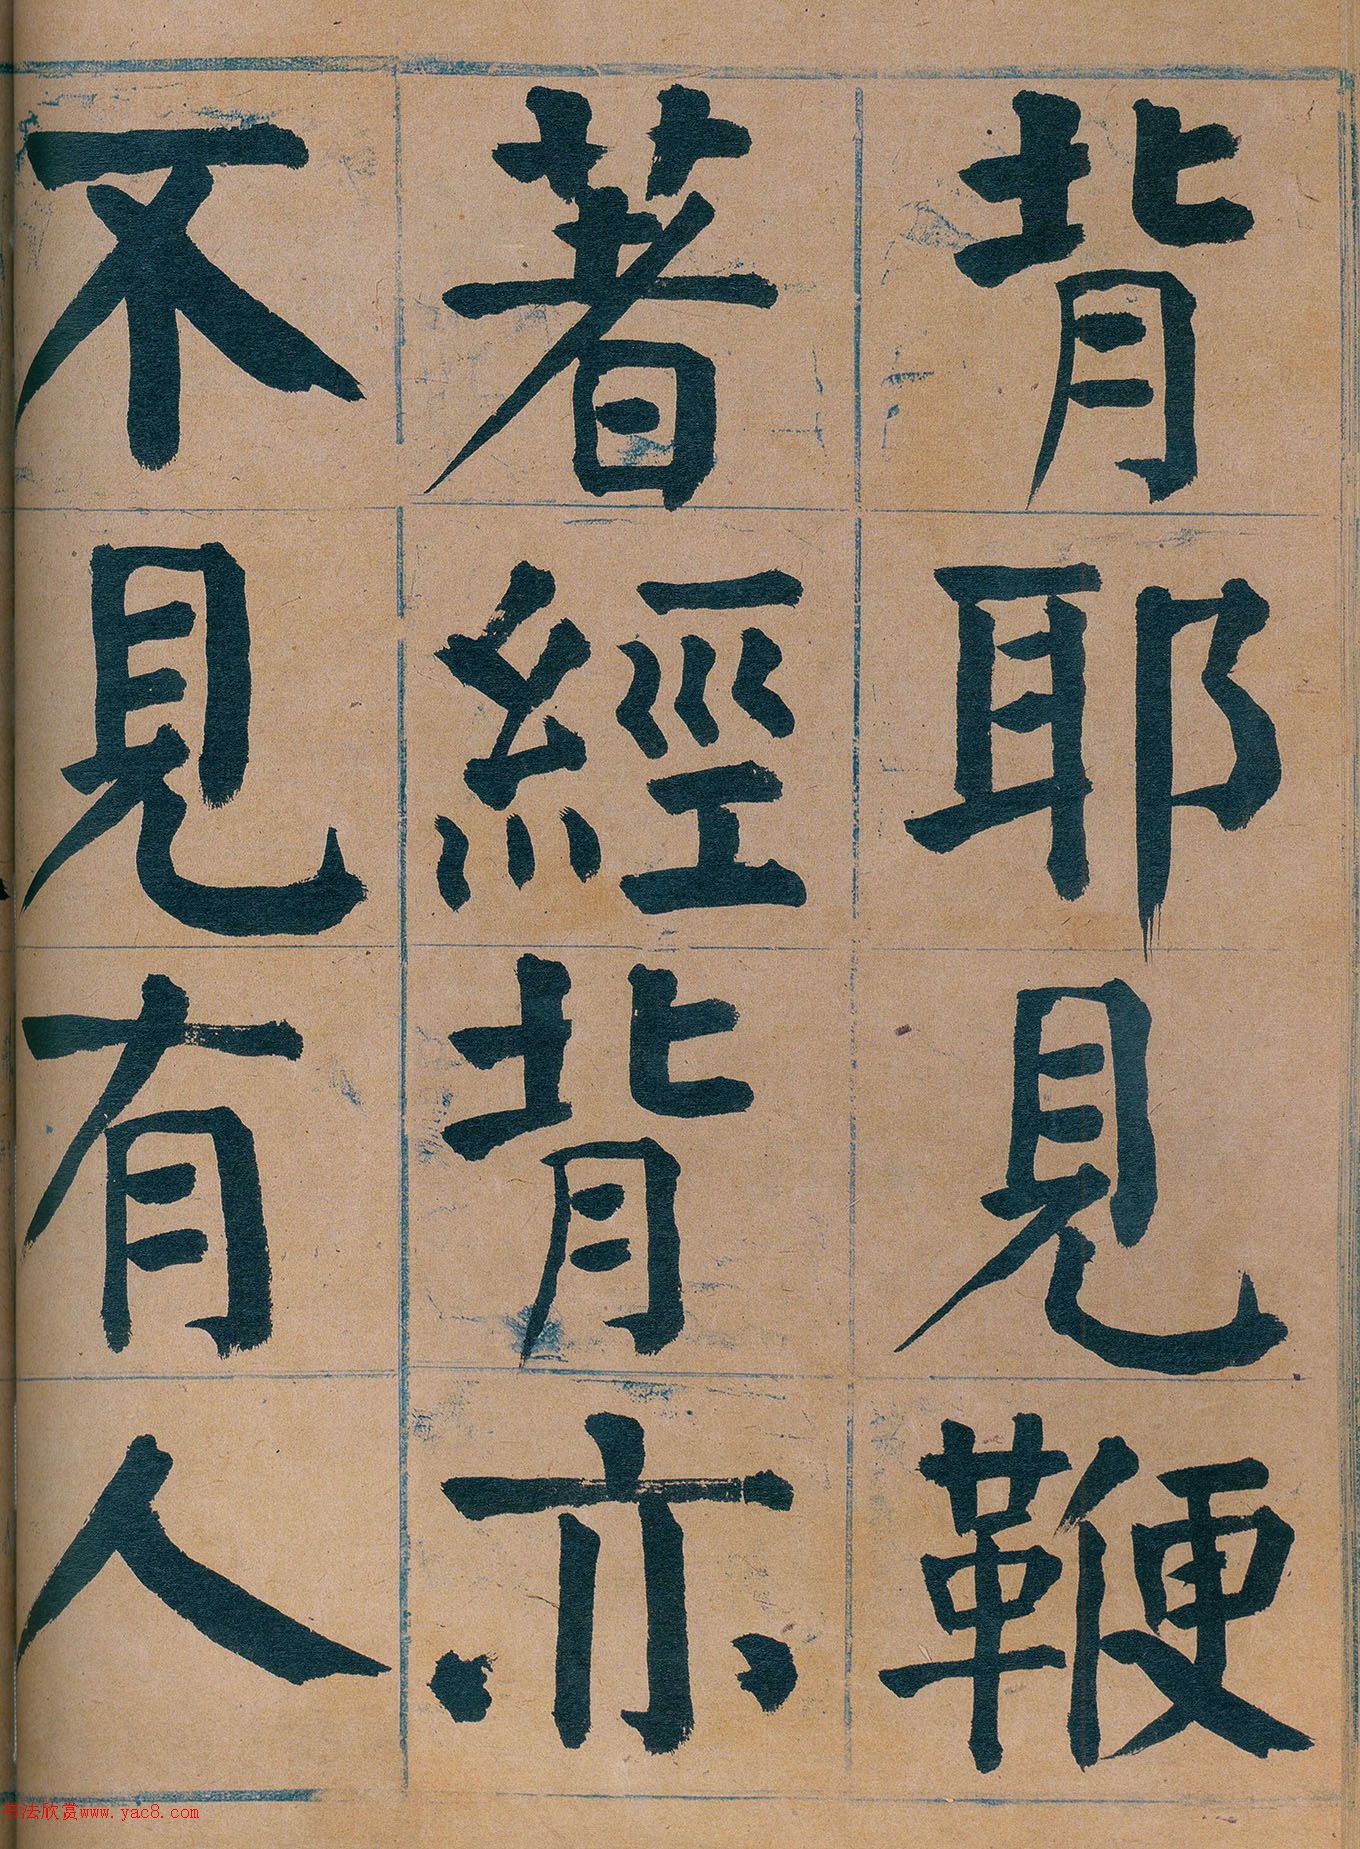 背耶見鞭
著經背亦
不見有人
书法欣赏www.yac8.com